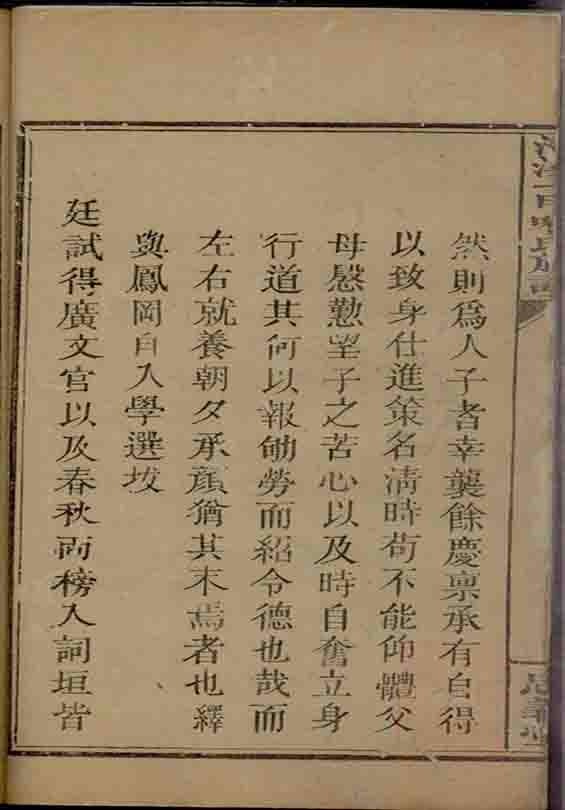 然則爲人子者幸襲餘慶禀承有自得
以致身仕進策名淸時茍不能仰體父
母慇懃望子之苦心以及時自奮立身
行道其何以報劬勞而紹令德也哉而
左右就養朝夕承顏猶其末焉者也繹
與鳳岡自入學選拔
廷試得廣文官以及春秋兩榜入詞垣皆